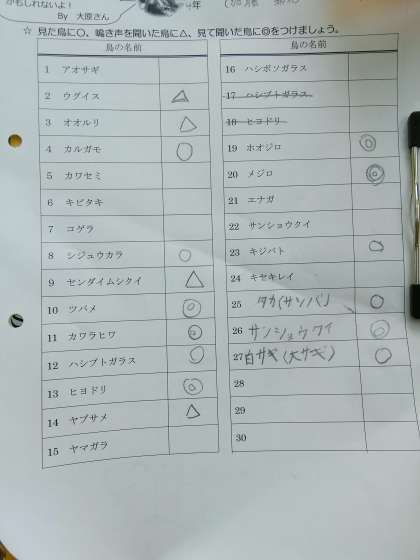 かもしれないよ！
By 大原さん
☆ 見た鳥に○、鳴き声を聞いた鳥に△、見て聞いた鳥に◎をつけましょう。
鳥の名前
1 アオサギ
2 ウグイス △
3 オオルリ △
4 カルガモ ○
5 カワセミ
6 キビタキ
7 コゲラ
8 シジュウカラ ○
9 センダイムシクイ △
10 ツバメ ◎
11 カワラヒワ ◎
12 ハシブトガラス ○
13 ヒヨドリ ◎
14 ヤブサメ △
15 ヤマガラ
鳥の名前
16 ハシボソガラス
17 ハシブトガラス
18 ヒヨドリ
19 ホオジロ ◎
20 メジロ ◎
21 エナガ
22 サンショウクイ
23 キジバト ○
24 キセキレイ
25 タカ(サシバ) ○
26 サンショウクイ ◎
27 白サギ(大サギ) ○
28
29
30